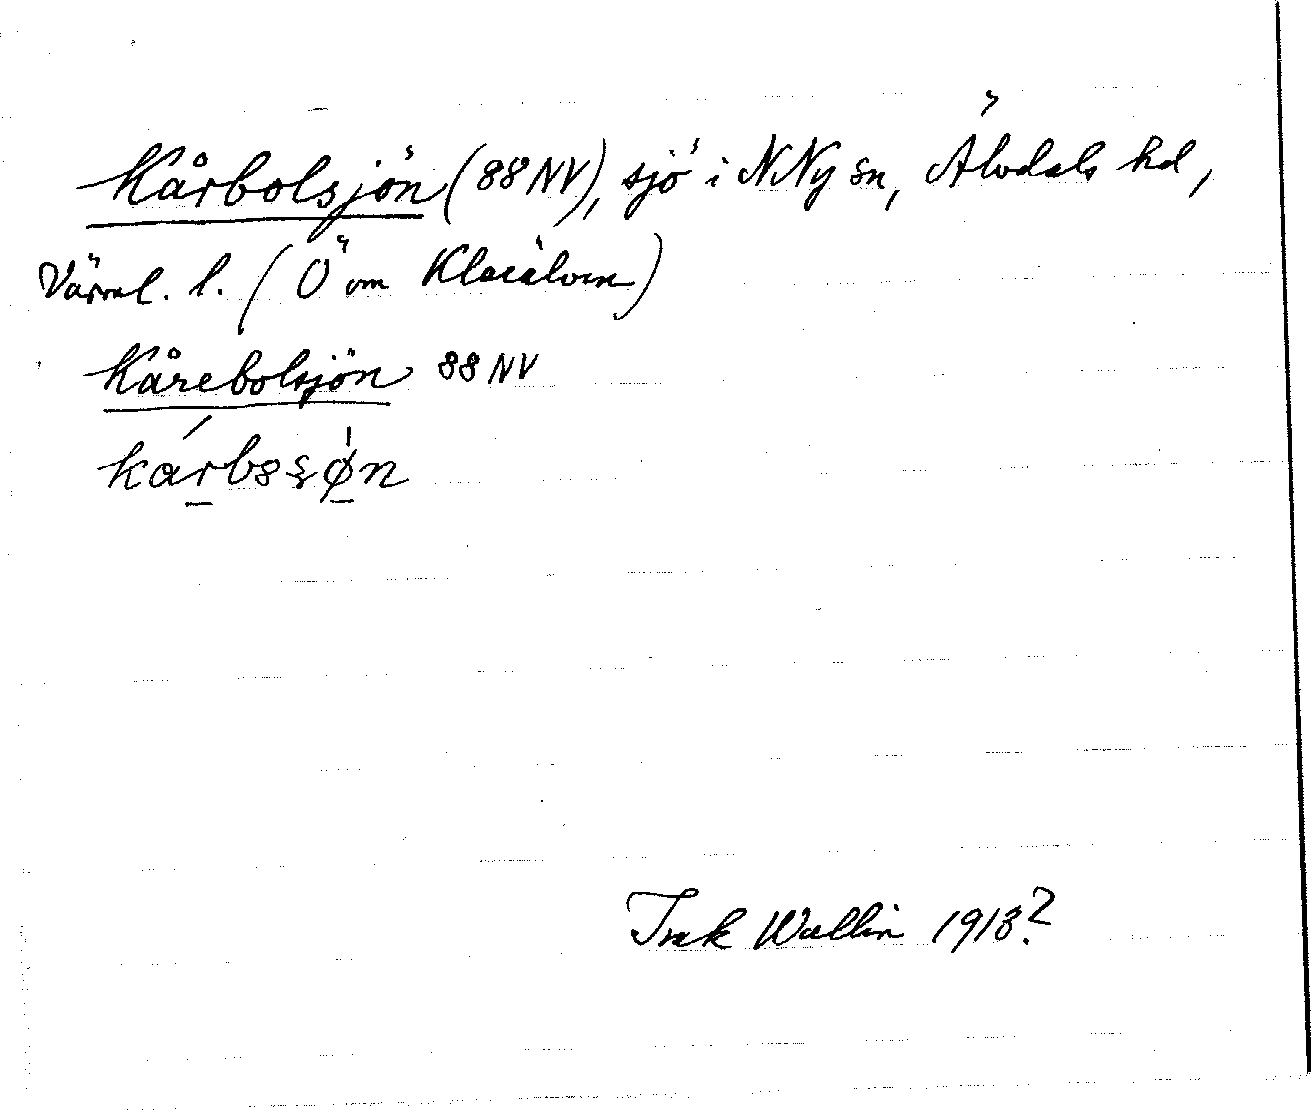 Kårbolsjön (88 NV), sjö i N Ny sn, Älvdals hd,
Värml. l. (Ö om Klarälven)
Kårebolsjön 88 NV
Wallin 1918?